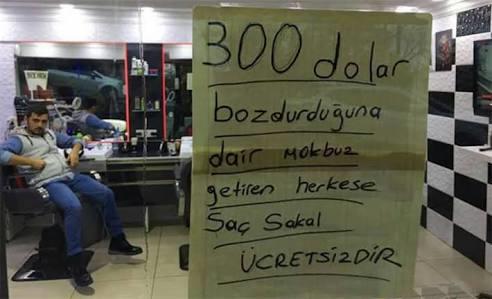 300 dolar
bozdurduğuna
dair MAKbuz
getiren herkese
Saç Sakal
ÜCRETSİZDİR